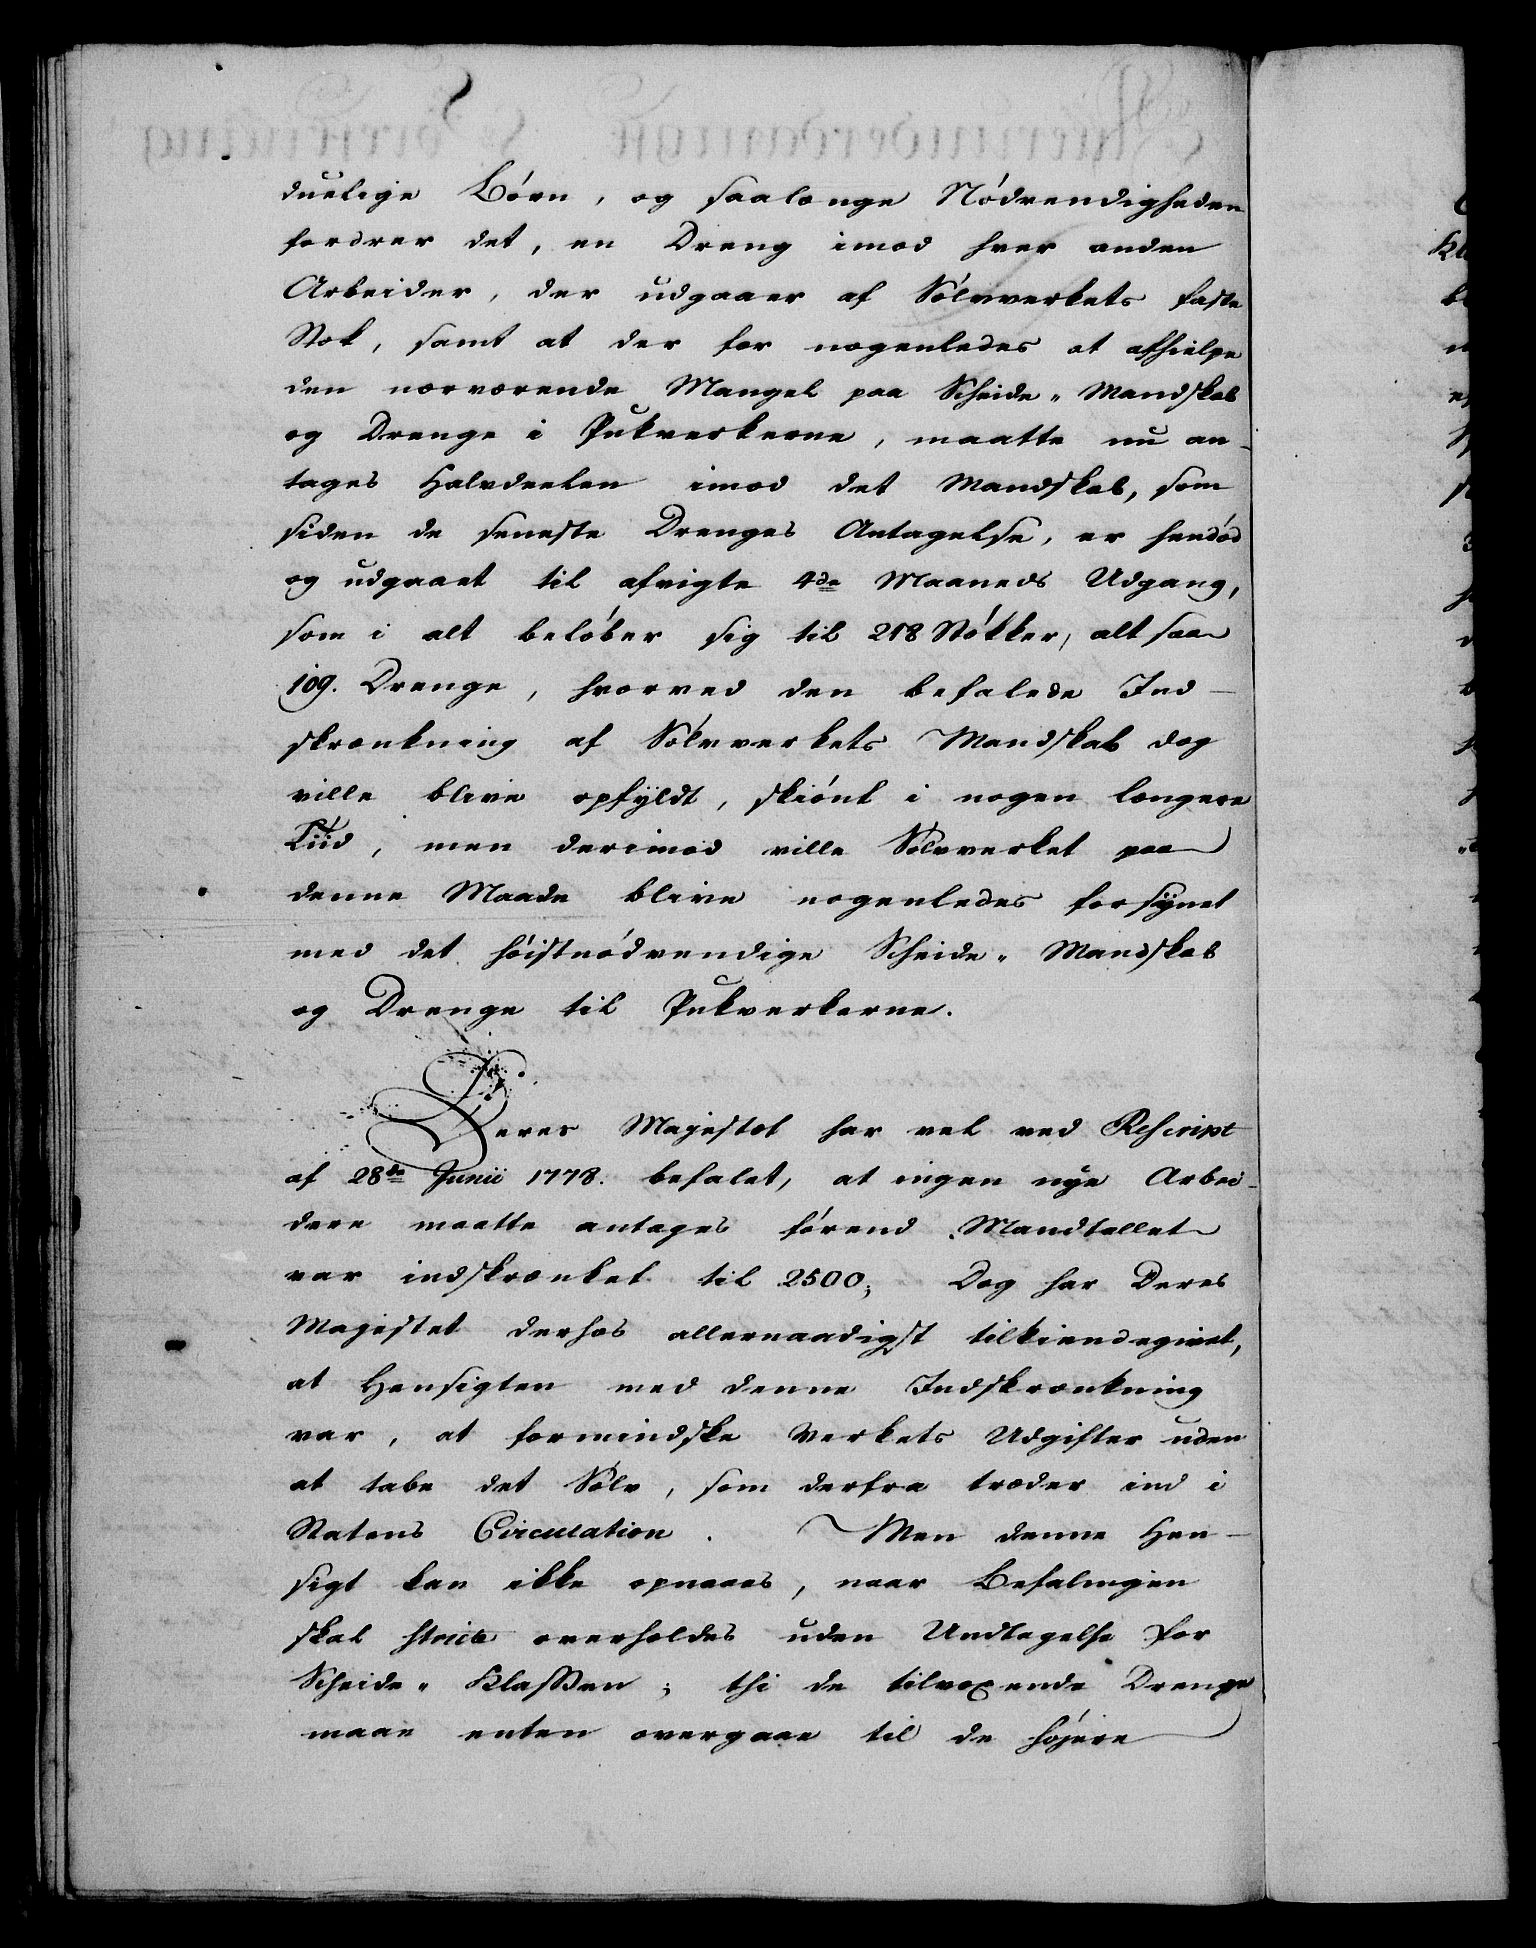 duelige Börn, og saalænge Nödvendigheden
fordrer det, en Dreng imod hver anden
Arbeider, der udgaaer af Sölvverkets faste
Stok, samt at der for nogenledes at afhielpe
den nærværende Mangel paa Scheide-Mandskab
og Drenge i Pukverkerne, maatte nu an-
tages Halvdeelen imod det Mandskab, som
siden de seneste Drenges Antagelse, er hendöd
og udgaaet til afvigte 4de Maaneds Udgang,
som i alt belöber sig til 218 Stökker, alt saa
109. Drenge, hvorved den befalede Ind-
skrænkning af Sölvverkets Mandskab dog
ville blive opfyldt, skiönt i nogen længere
Tiid, men derimod ville Sölvverket paa
denne Maade blive nogenledes forsÿnet
med det höistnödvendige Scheide-Mandskab
og Drenge til Pukverkerne.
Deres Majestæt har vel ved Rescript
af 28de Junii 1778. befalet, at ingen nye Arbei-
dere maatte antages förend Mandtallet
var indskrænket til 2500; Dog har Deres
Majestet derhos allernaadigst tilkiendegivet,
at Hensigten med denne Indskrænkning
var, at formindske Verkets Udgifter uden
at tabe det Sölv, som derfra træder ind i
Statens Circulation. Men denne Hen-
sigt kan ikke opnaaes, naar Befalingen
skal stricte overholdes uden Undtagelse for
Scheide-Klassen; thi de tilvoxende Drenge
maae enten overgaae til de höjere